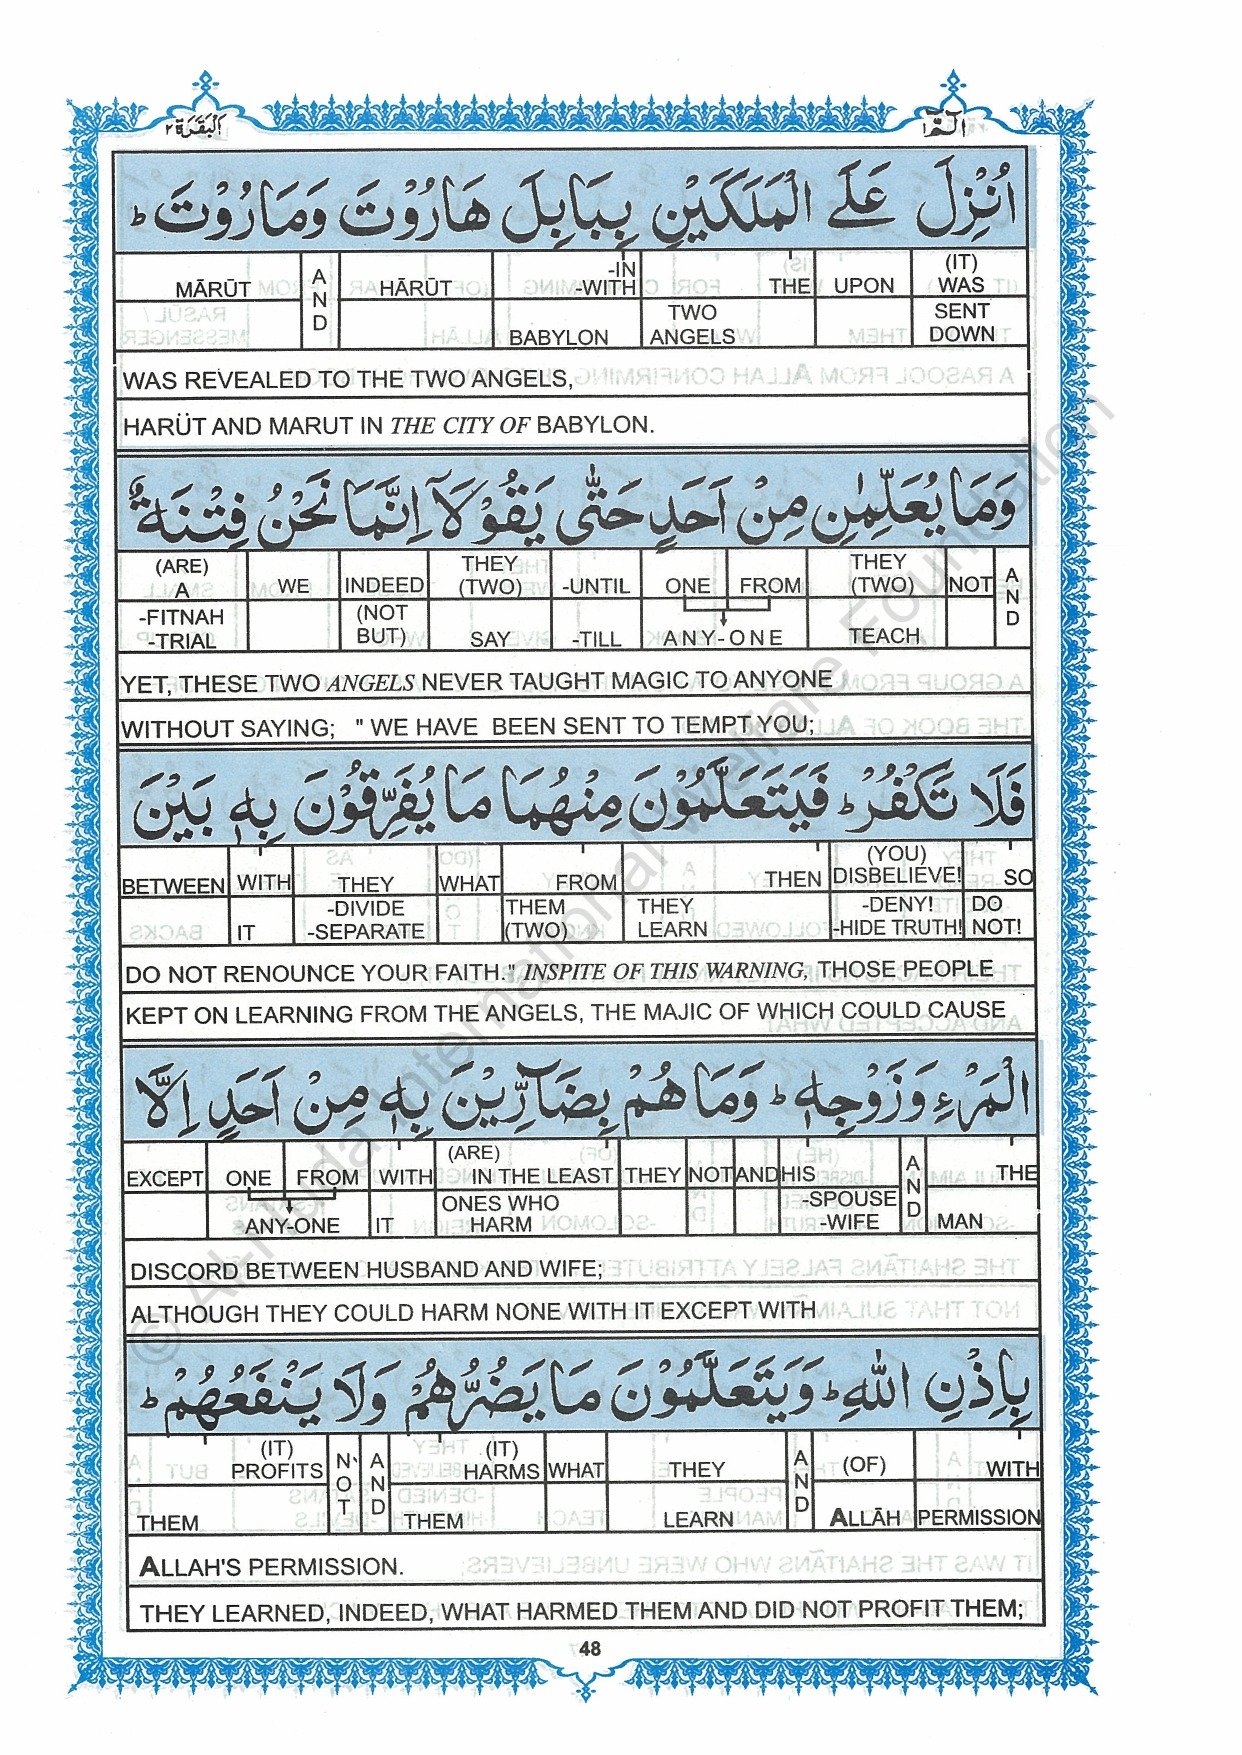 البقرة ٢ الٓمّٓ ١
اُنْزِلَ عَلَى الْمَلَكَيْنِ بِبَابِلَ هَارُوْتَ وَمَارُوْتَ ؕ
MĀRŪT AND HĀRŪT -IN -WITH THE UPON (IT) WAS
BABYLON TWO ANGELS SENT DOWN
WAS REVEALED TO THE TWO ANGELS,
HARÜT AND MARUT IN THE CITY OF BABYLON.
وَمَا يُعَلِّمٰنِ مِنْ اَحَدٍ حَتّٰى يَقُوْلَاۤ اِنَّمَا نَحْنُ فِتْنَةٌ
(ARE) A WE INDEED THEY (TWO) -UNTIL ONE FROM THEY (TWO) NOT AND
-FITNAH -TRIAL (NOT BUT) SAY -TILL ANY-ONE TEACH
YET, THESE TWO ANGELS NEVER TAUGHT MAGIC TO ANYONE
WITHOUT SAYING; " WE HAVE BEEN SENT TO TEMPT YOU;
فَلَا تَكْفُرْ ؕ فَيَتَعَلَّمُوْنَ مِنْهُمَا مَا يُفَرِّقُوْنَ بِهٖ بَيْنَ
BETWEEN WITH THEY WHAT FROM THEN (YOU) DISBELIEVE! SO
IT -DIVIDE -SEPARATE THEM (TWO) THEY LEARN -DENY! -HIDE TRUTH! DO NOT!
DO NOT RENOUNCE YOUR FAITH." INSPITE OF THIS WARNING, THOSE PEOPLE
KEPT ON LEARNING FROM THE ANGELS, THE MAJIC OF WHICH COULD CAUSE
الْمَرْءِ وَزَوْجِهٖ ؕ وَمَا هُمْ بِضَآرِّيْنَ بِهٖ مِنْ اَحَدٍ اِلَّا
EXCEPT ONE FROM WITH (ARE) IN THE LEAST THEY NOT AND HIS AND THE
ANY-ONE IT ONES WHO HARM -SPOUSE -WIFE MAN
DISCORD BETWEEN HUSBAND AND WIFE;
ALTHOUGH THEY COULD HARM NONE WITH IT EXCEPT WITH
بِاِذْنِ اللّٰهِ ؕ وَيَتَعَلَّمُوْنَ مَا يَضُرُّهُمْ وَلَا يَنْفَعُهُمْ ؕ
(IT) PROFITS NOT AND (IT) HARMS WHAT THEY AND (OF) WITH
THEM THEM LEARN ALLĀH PERMISSION
ALLAH'S PERMISSION.
THEY LEARNED, INDEED, WHAT HARMED THEM AND DID NOT PROFIT THEM;
48
© Al-Huda International Welfare Foundation